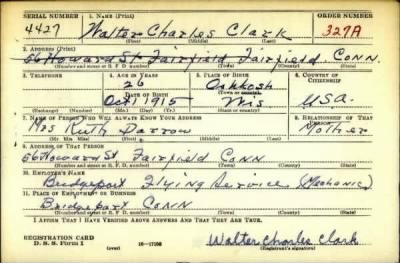 SERIAL NUMBER 1. NAME (Print) ORDER NUMBER
4427 Walter Charles Clark 327A
(First) (Middle) (Last)
2. ADDRESS (Print)
66 Howard St. Fairfield Fairfield, CONN.
(Number and street or R. F. D. number) (Town) (County) (State)
3. TELEPHONE 4. AGE IN YEARS 5. PLACE OF BIRTH 6. COUNTRY OF CITIZENSHIP
26 Oshkosh
DATE OF BIRTH (Town or county)
Oct 1915 Wis. USA.
(Exchange) (Number) (Mo.) (Day) (Yr.) (State or country)
7. NAME OF PERSON WHO WILL ALWAYS KNOW YOUR ADDRESS 8. RELATIONSHIP OF THAT PERSON
Mrs Ruth Darrow Mother
(Mr. Mrs. Miss) (First) (Middle) (Last)
9. ADDRESS OF THAT PERSON
66 Howard St Fairfield CONN
(Number and street or R. F. D. number) (Town) (County) (State)
10. EMPLOYER'S NAME
Bridgeport Flying Service (Mechanic)
11. PLACE OF EMPLOYMENT OR BUSINESS
Bridgeport CONN
(Number and street or R. F. D. number) (Town) (County) (State)
I AFFIRM THAT I HAVE VERIFIED ABOVE ANSWERS AND THAT THEY ARE TRUE.
REGISTRATION CARD
D. S. S. Form 1 (over) 16-17105 Walter Charles Clark
(Registrant's signature)